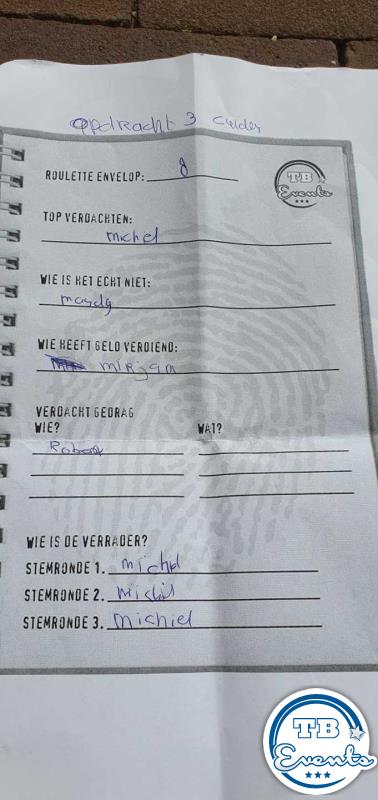 opdracht 3 Gulden
ROULETTE ENVELOP: 8
TB
Events
TOP VERDACHTEN:
michel
WIE IS HET ECHT NIET:
maydy
WIE HEEFT GELD VERDIEND:
mirjam
VERDACHT GEDRAG
WIE? WAT?
Robert
WIE IS DE VERRADER?
STEMRONDE 1. michel
STEMRONDE 2.
STEMRONDE 3. michiel
TB
Events